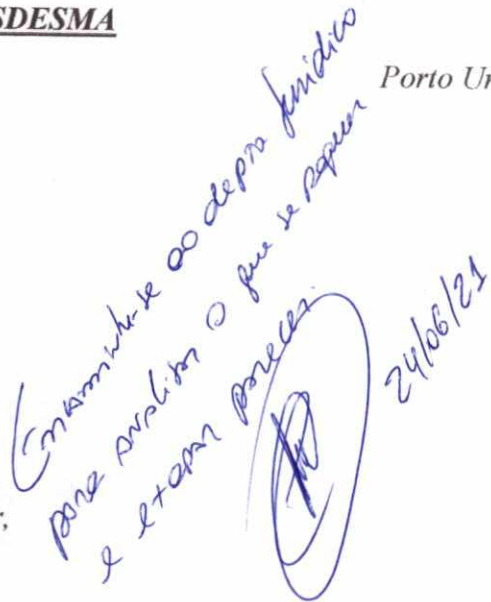 SDESMA
Porto Ur
Encaminhe-se ao depto Jurídico
para analisar o que se requer
e exarar parecer.
24/06/21
;